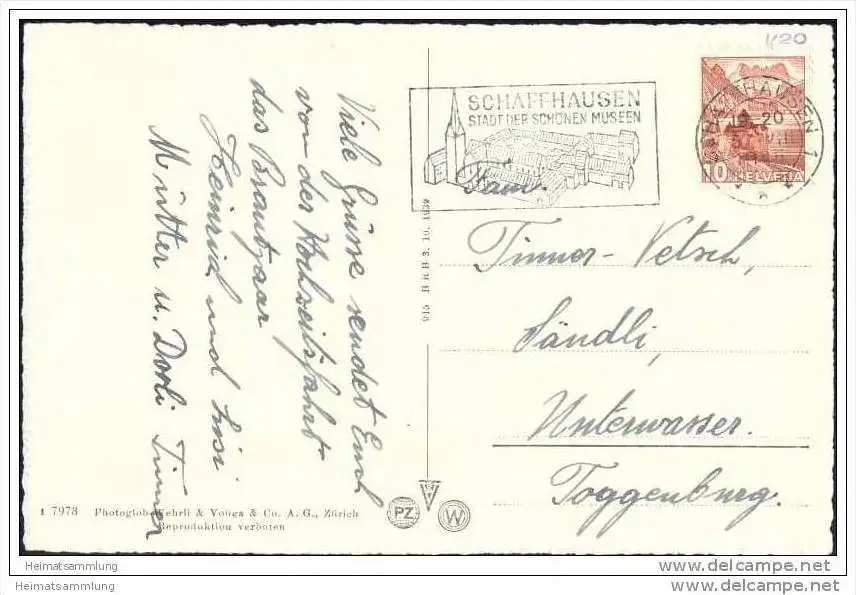 Viele Grüsse sendet Euch
von der Hochzeitsfahrt
das Brautpaar
Heinrich und Lusi
Mutter u. Dorli Tinner
1920
SCHAFFHAUSEN
STADT DER SCHÖNEN MUSEEN
SCHAFFHAUSEN 1
10 HELVETIA
Fam.
Tinner-Vetsch,
Sändli,
Unterwasser.
Toggenburg.
915 H B 3. 10. 1939
1 7978 Photoglob-Wehrli & Vouga & Co. A. G., Zürich
Reproduktion verboten
PZ
W
Heimatsammlung
Heimatsammlung
www.delcampe.net
www.delcampe.net